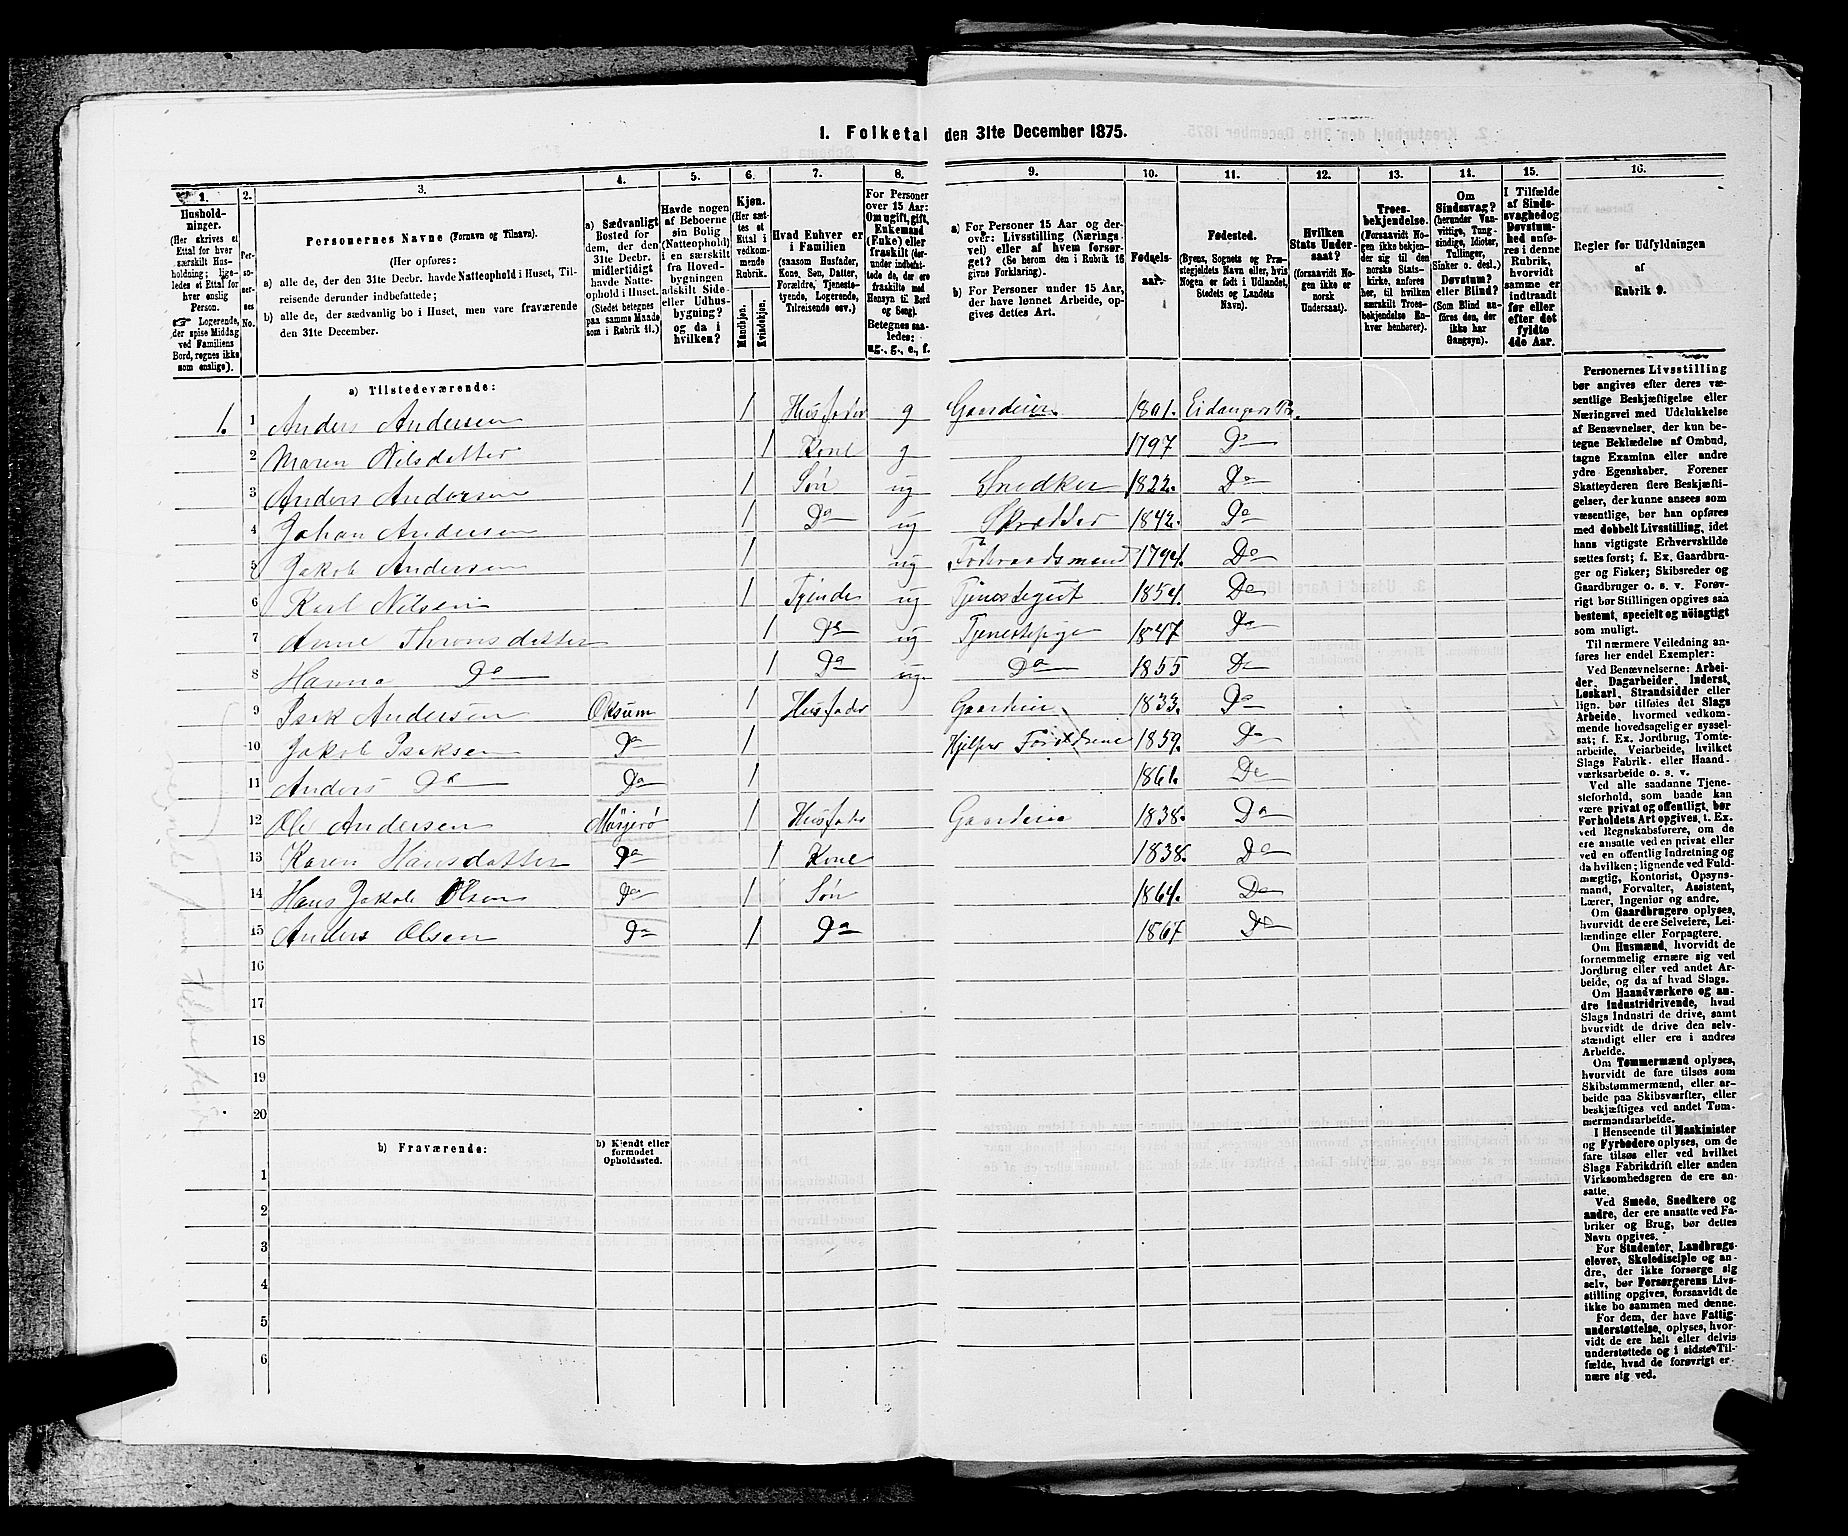 1. Folketal den 31te December 1875.
1. 2. 3. 4. 5. 6. 7. 8. 9. 10. 11. 12. 13. 14. 15. 16.
Hushold-
ninger.
(Her skrives et
Ettal for hver
særskilt Hus-
holdning; lige-
ledes et Ettal for
hver enslig
Person.
☞ Logerende,
der spise Middag
ved Familiens
Bord, regnes ikke
som enslige).
Per-
so-
ner-
nes
No.
Personernes Navne (Fornavn og Tilnavn).
(Her opføres:
a) alle de, der den 31te Decbr. havde Natteophold i Huset, Til-
reisende derunder indbefattede;
b) alle de, der sædvanlig bo i Huset, men vare fraværende
den 31te December.
a) Sædvanligt
Bosted for
dem, der den
31te Decbr.
midlertidigt
havde Natte-
ophold i Huset.
(Stedet betegnes
paa samme Maade
som i Rubrik 11.)
Havde nogen
af Beboerne
sin Bolig
(Natteophold)
i en særskilt
fra Hoved-
bygningen
adskilt Side-
eller Udhus-
bygning?
og da i
hvilken?
Kjøn.
(Her sæt-
tes et
Ettal i
vedkom-
mende
Rubrik.
Mandkjøn.
Kvindekjøn.
Hvad Enhver er
i Familien
(saasom Husfader,
Kone, Søn, Datter,
Forældre, Tjeneste-
tyende, Logerende,
Tilreisende osv.)
For Personer
over 15 Aar:
Om ugift, gift,
Enkemand
(Enke) eller
fraskilt (her-
under indbefat-
tede de, der ere
fraskilte med
Hensyn til Bord
og Seng).
Betegnes saa-
ledes:
ug., g., e., f.
a) For Personer 15 Aar og der-
over: Livsstilling (Nærings-
vei) eller af hvem forsør-
get? (Se herom den i Rubrik 16
givne Forklaring).
b) For Personer under 15 Aar,
der have lønnet Arbeide, op-
gives dettes Art.
Fødsels-
aar.
Fødested.
(Byens, Sognets og Præ-
stegjeldets Navn eller, hvis
Nogen er født i Udlandet,
Stedets og Landets
Navn).
Hvilken
Stats Under-
saat?
(forsaavidt No-
gen ikke er
norsk
Undersaat).
Troes-
bekjendelse.
(Forsaavidt No-
gen ikke bekjen-
der sig til den
norske Stats-
kirke, anføres
her, til hvilken
særskilt Troes-
bekjendelse En-
hver henhører).
Om
Sindssvag?
(herunder Van-
vittige, Tung-
sindige, Idioter,
Tullinger,
Sinker o. desl.)
Døvstum?
eller Blind?
(Som Blind an-
føres den, der
ikke har
Gangsyn).
I Tilfælde
af Sinds-
svaghed og
Døvstum-
hed anfø-
res i denne
Rubrik,
hvorvidt
samme er
indtraadt
før eller
efter det
fyldte
4de Aar.
Regler for Udfyldningen
af
Rubrik 9.
a) Tilstedeværende:
1. 1 Anders Andersen 1 Husfader g Gaardeier 1801. Eidangers Pr.
2 Maren Nilsdatter 1 Kone g 1797 Do
3 Anders Andersen 1 Søn ug Snedker 1822. Do
4 Johan Andersen 1 Do ug Skrædder 1842. Do
5 Jakob Andersen 1 ug Føderaadsmand 1794. Do
6 Karl Nilsen 1 Tjende ug Tjenestegut 1854. Do
7 Anne Thronsdatter 1 Do ug Tjenestepige 1847 Do
8 Hanna Do 1 Do ug Do 1855 Do
9 Isak Andersen Oksum 1 Husfader Gaardeier 1833. Do
10 Jakob Isaksen Do 1 Hjelper Forældrene 1859. Do
11 Anders Do Do 1 1861. Do
12 Ole Andersen 1 Husfader Gaardeier 1838. Do
13 Karen Hansdatter Do 1 Kone 1838. Do
14 Hans Jakob Olsen Do 1 Søn 1864. Do
15 Anders Olsen Do 1 Do 1867 Do
16
17
18
19
20
b) Fraværende:
b) Kjendt eller
formodet
Opholdssted.
1
2
3
4
5
6
Personernes Livsstilling
bør angives efter deres væ-
sentlige Beskjæftigelse eller
Næringsvei med Udelukkelse
af Benævnelser, der kun be-
tegne Beklædelse af Ombud,
tagne Examina eller andre
ydre Egenskaber. Forener
Skatteyderen flere Beskjæfti-
gelser, der kunne ansees som
væsentlige, bør han opføres
med dobbelt Livsstilling, idet
hans vigtigste Erhvervskilde
sættes først; f. Ex. Gaardbru-
ger og Fisker; Skibsreder og
Gaardbruger o. s. v. Forøv-
rigt bør Stillingen opgives saa
bestemt, specielt og nøiagtigt
som muligt.
Til nærmere Veiledning an-
føres her endel Exempler:
Ved Benævnelserne: Arbei-
der, Dagarbeider, Inderst,
Løskarl, Strandsidder eller
lign. bør tilføies det Slags
Arbeide, hvormed vedkom-
mende hovedsagelig er syssel-
sat; f. Ex. Jordbrug, Tomte-
arbeide, Veiarbeide, hvilket
Slags Fabrik- eller Haand-
værksarbeide o. s. v.
Ved alle saadanne Tjene-
steforhold, som baade kan
være private og offentlige, bør
Forholdets Art opgives, f. Ex.
ved Regnskabsførere, om de
ere ansatte ved en privat eller
ved en offentlig Indretning og
da hvilken; lignende ved Fuld-
mægtig, Kontorist, Opsyns-
mand, Forvalter, Assistent,
Lærer, Ingeniør og andre.
Om Gaardbrugere oplyses,
hvorvidt de ere Selveiere, Lei-
lændinge eller Forpagtere.
Om Husmænd, hvorvidt de
fornemmelig ernære sig ved
Jordbrug eller ved andet Ar-
beide, og da af hvad Slags.
Om Haandværkere og an-
dre Industridrivende, hvad
Slags Industri de drive, samt
hvorvidt de drive den selv-
stændigt eller ere i andres
Arbeide.
Om Tømmermænd oplyses,
hvorvidt de fare tilsøs som
Skibstømmermænd, eller ar-
beide paa Skibsværfter, eller
beskjæftiges ved andet Tøm-
mermandsarbeide.
I Henseende til Maskinister
og Fyrbødere oplyses, om de
fare tilsøs eller ved hvilket
Slags Fabrikdrift eller anden
Virksomhedsgren de ere an-
satte.
Ved Smede, Snedkere og
andre, der ere ansatte ved Fa-
briker og Brug, bør dettes
Navn opgives.
For Studenter, Landbrugs-
elever, Skoledisciple og an-
dre, der ikke forsørge sig
selv, bør Forsørgerens Livs-
stilling opgives, forsaavidt de
ikke bo sammen med denne.
For dem, der have Fattig-
understøttelse, oplyses, hvor-
vidt de ere helt eller delvis
understøttede og i sidste Til-
fælde, hvad de forøvrigt er-
nære sig ved.